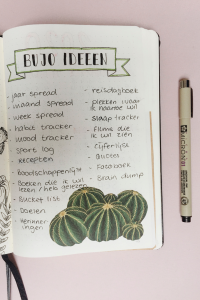 BUJO IDEEEN
- jaar spread
- maand spread
- week spread
- habit tracker
- mood tracker
- sport log
- recepten
- boodschappenlijst
- boeken die ik wil
lezen / heb gelezen
- bucket list
- doelen
- herinner
ingen
- reisdagboek
- plekken waar
ik naartoe wil
- slaap tracker
- films die
ik wil zien
- cijferlijst
- quotes
- fotoboek
- brain dump
MICRON